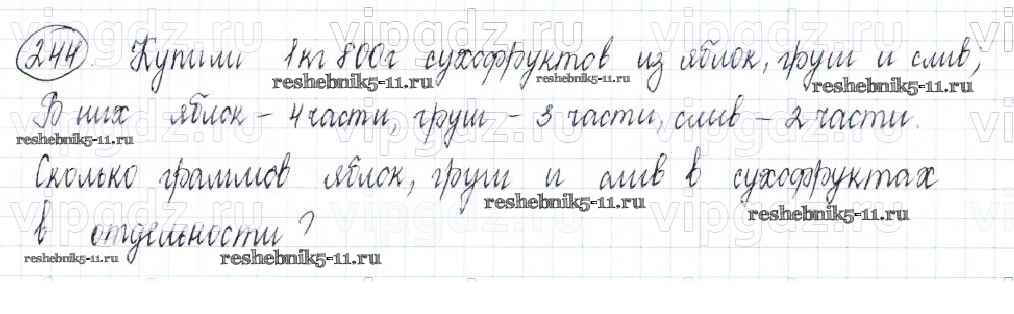 244. Купили 1кг 800г сухофруктов из яблок, груш и слив;
В них яблок - 4 части, груш - 3 части, слив - 2 части.
Сколько граммов яблок, груш и слив в сухофруктах
в отдельности?
vipgdz.ru
reshebnik5-11.ru
reshebnik5-11.ru
reshebnik5-11.ru
reshebnik5-11.ru
reshebnik5-11.ru
reshebnik5-11.ru
reshebnik5-11.ru
reshebnik5-11.ru